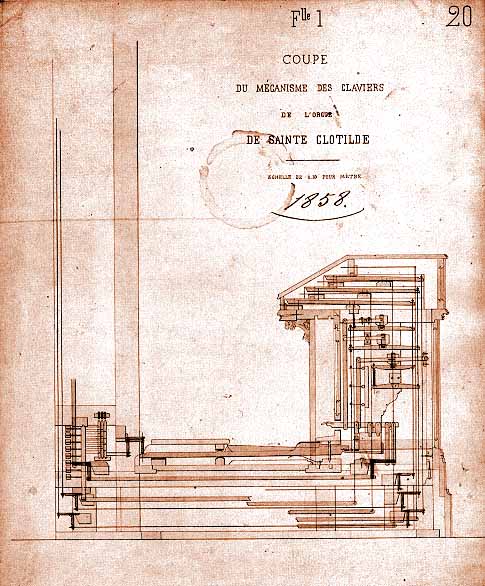 Flle 1
20
COUPE
DU MÉCANISME DES CLAVIERS
DE L'ORGUE
DE SAINTE CLOTILDE
ECHELLE DE 0.10 POUR MÈTRE
1858.